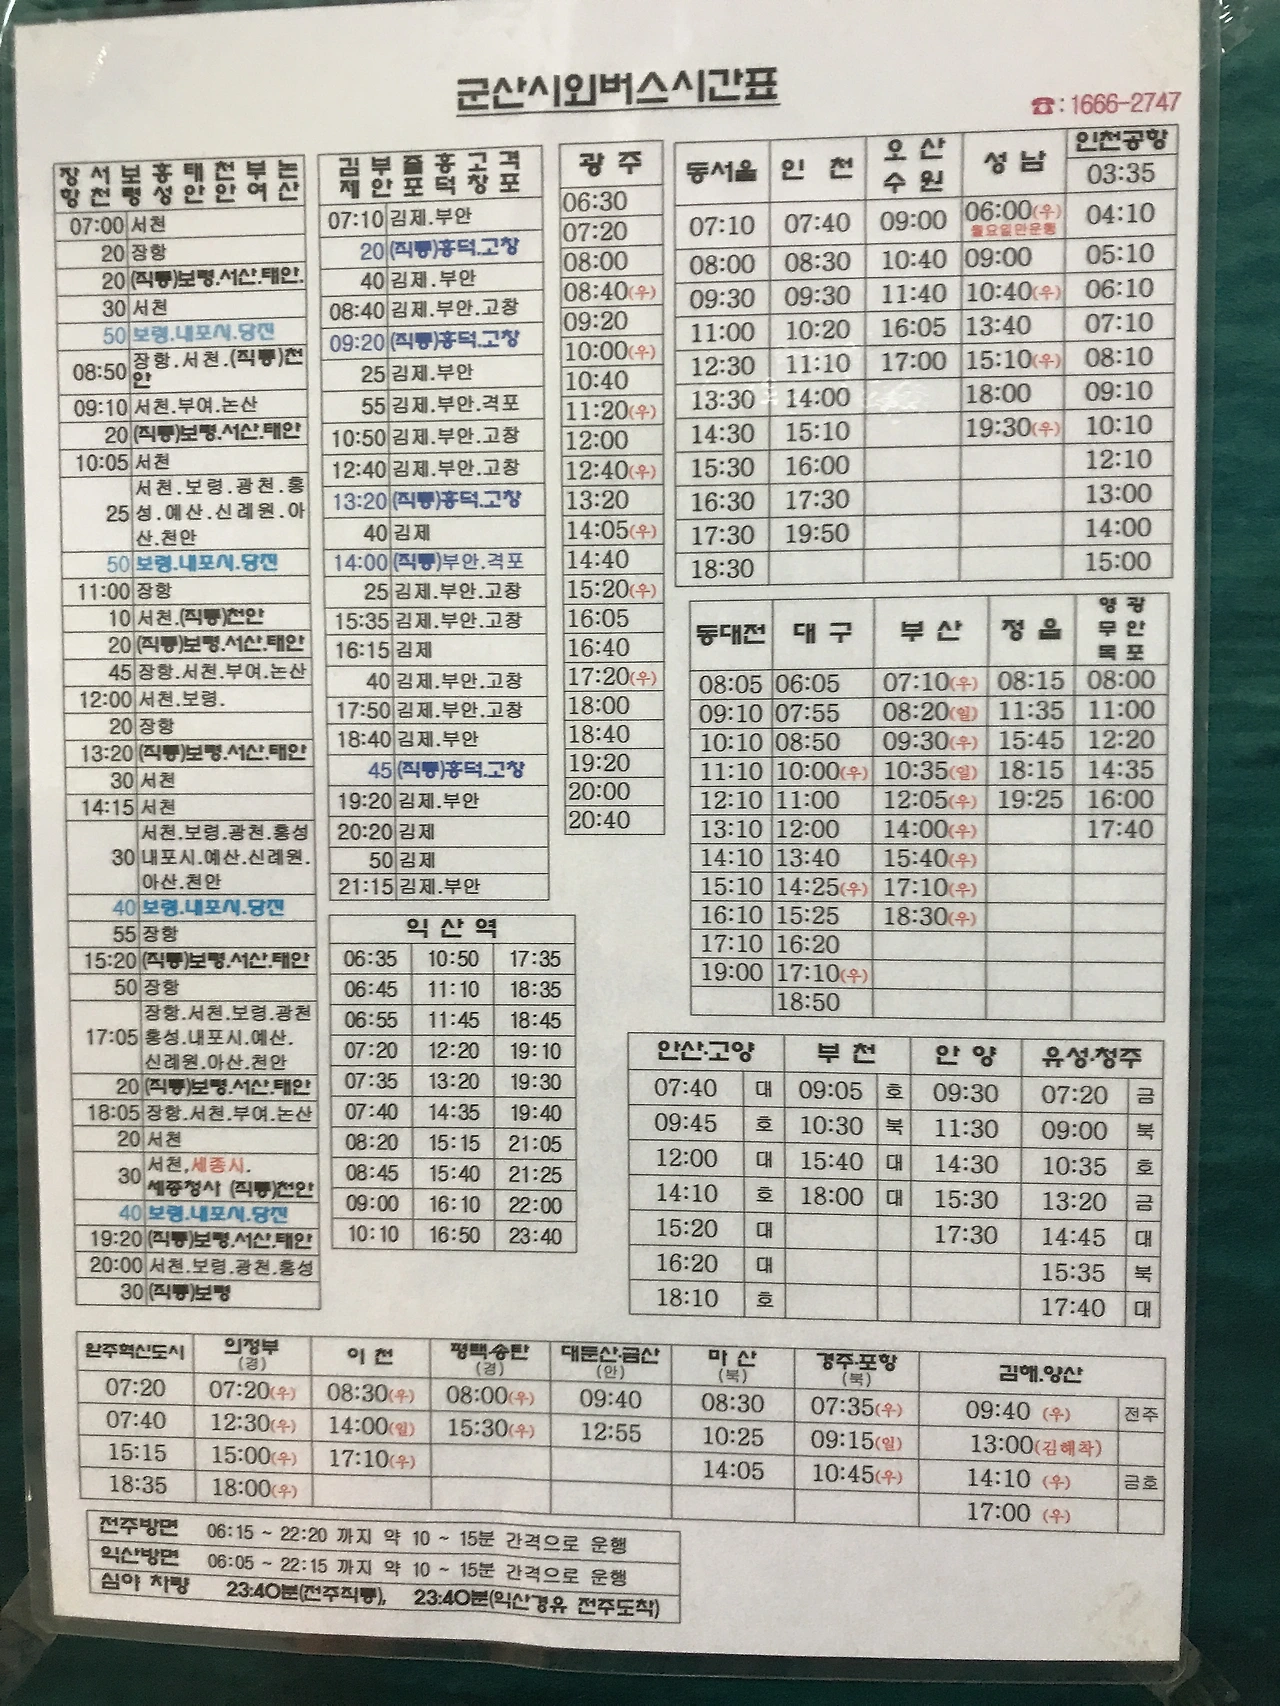 군산시외버스시간표
☎:1666-2747
장 서 보 홍 태 천 부 논
항 천 령 성 안 안 여 산
07:00 서천
20 장항
20 (직통)보령.서산.태안.
30 서천
50 보령.내포시.당진
08:50 장항.서천.(직통)천
안
09:10 서천.부여.논산
20 (직통)보령.서산.태안
10:05 서천
서천.보령.광천.홍
25 성.예산.신례원.아
산.천안
50 보령.내포시.당진
11:00 장항
10 서천.(직통)천안
20 (직통)보령.서산.태안
45 장항.서천.부여.논산
12:00 서천.보령.
20 장항
13:20 (직통)보령.서산.태안
30 서천
14:15 서천
서천.보령.광천.홍성
30 내포시.예산.신례원.
아산.천안
40 보령.내포시.당진
55 장항
15:20 (직통)보령.서산.태안
50 장항
장항.서천.보령.광천
17:05 홍성.내포시.예산.
신례원.아산.천안
20 (직통)보령.서산.태안
18:05 장항.서천.부여.논산
20 서천
30 서천,세종시.
세종청사 (직통)천안
40 보령.내포시.당진
19:20 (직통)보령.서산.태안
20:00 서천.보령.광천.홍성
30 (직통)보령
김 부 줄 흥 고 격
제 안 포 덕 창 포
07:10 김제.부안
20 (직통)흥덕.고창
40 김제.부안
08:40 김제.부안.고창
09:20 (직통)흥덕.고창
25 김제.부안
55 김제.부안.격포
10:50 김제.부안.고창
12:40 김제.부안.고창
13:20 (직통)흥덕.고창
40 김제
14:00 (직통)부안.격포
25 김제.부안.고창
15:35 김제.부안.고창
16:15 김제
40 김제.부안.고창
17:50 김제.부안.고창
18:40 김제.부안
45 (직통)흥덕.고창
19:20 김제.부안
20:20 김제
50 김제
21:15 김제.부안
광 주
06:30
07:20
08:00
08:40(우)
09:20
10:00(우)
10:40
11:20(우)
12:00
12:40(우)
13:20
14:05(우)
14:40
15:20(우)
16:05
16:40
17:20(우)
18:00
18:40
19:20
20:00
20:40
동서울 인 천 오 산 수 원 성 남 인천공항
03:35
07:10 07:40 09:00 06:00(우) 04:10
월요일만운행
08:00 08:30 10:40 09:00 05:10
09:30 09:30 11:40 10:40(우) 06:10
11:00 10:20 16:05 13:40 07:10
12:30 11:10 17:00 15:10(우) 08:10
13:30 14:00 18:00 09:10
14:30 15:10 19:30(우) 10:10
15:30 16:00 12:10
16:30 17:30 13:00
17:30 19:50 14:00
18:30 15:00
동대전 대 구 부 산 정 읍 영 광 무 안 목 포
08:05 06:05 07:10(우) 08:15 08:00
09:10 07:55 08:20(일) 11:35 11:00
10:10 08:50 09:30(우) 15:45 12:20
11:10 10:00(우) 10:35(일) 18:15 14:35
12:10 11:00 12:05(우) 19:25 16:00
13:10 12:00 14:00(우) 17:40
14:10 13:40 15:40(우)
15:10 14:25(우) 17:10(우)
16:10 15:25 18:30(우)
17:10 16:20
19:00 17:10(우)
18:50
익 산 역
06:35 10:50 17:35
06:45 11:10 18:35
06:55 11:45 18:45
07:20 12:20 19:10
07:35 13:20 19:30
07:40 14:35 19:40
08:20 15:15 21:05
08:45 15:40 21:25
09:00 16:10 22:00
10:10 16:50 23:40
안산.고양 부 천 안 양 유성.청주
07:40 대 09:05 호 09:30 07:20 금
09:45 호 10:30 북 11:30 09:00 북
12:00 대 15:40 대 14:30 10:35 호
14:10 호 18:00 대 15:30 13:20 금
15:20 대 17:30 14:45 대
16:20 대 15:35 북
18:10 호 17:40 대
완주혁신도시 의정부(경) 이 천 평택.송탄(경) 대둔산.금산(안) 마 산(북) 경주.포항(북) 김해.양산
07:20 07:20(우) 08:30(우) 08:00(우) 09:40 08:30 07:35(우) 09:40 (우) 전주
07:40 12:30(우) 14:00(일) 15:30(우) 12:55 10:25 09:15(일) 13:00(김해착)
15:15 15:00(우) 17:10(우) 14:05 10:45(우) 14:10 (우) 금호
18:35 18:00(우) 17:00 (우)
전주방면 06:15 ~ 22:20 까지 약 10 ~ 15분 간격으로 운행
익산방면 06:05 ~ 22:15 까지 약 10 ~ 15분 간격으로 운행
심야 차량 23:40분(전주직통), 23:40분(익산경유 전주도착)